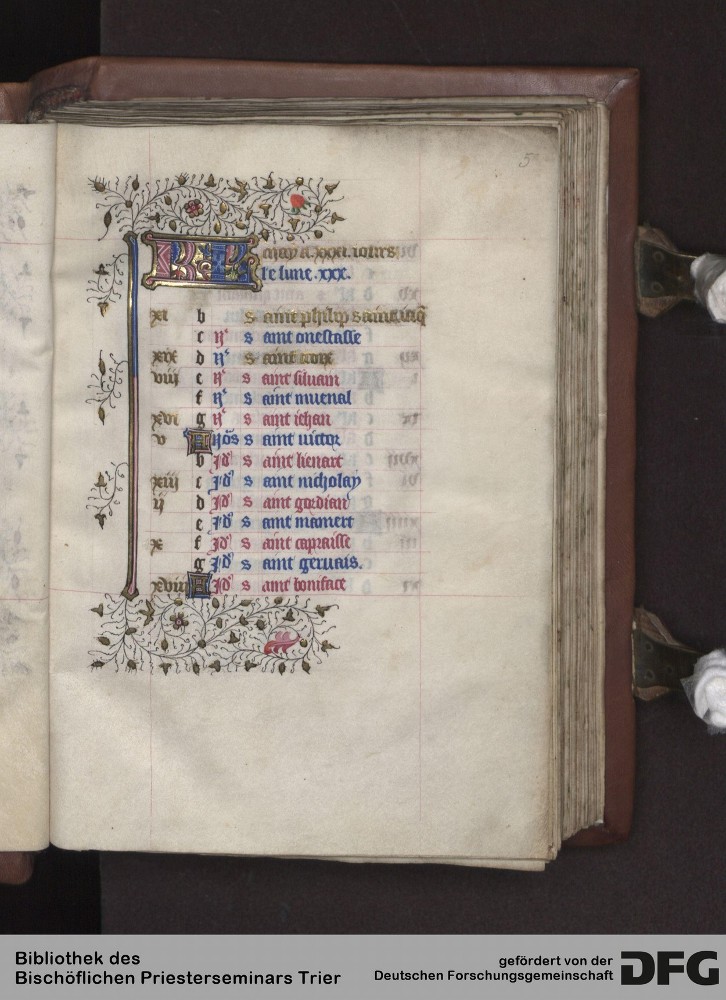 5
KL may a .xxxi. iours
le lune .xxx.
xi b s aint philip s aint iaq̃
c n͛ s aint onestasse
xix d n͛ s aint croix
viii e n͛ s aint siluain
f n͛ s aint muenal
xvi g n͛ s aint iehan
v A nõs s aint uictor
b Jd͛ s aint lienart
xiii c Jd͛ s aint nicholay
ii d Jd͛ s aint gordian
e Jd͛ s aint mamert
x f Jd͛ s aint capraisse
g Jd͛ s aint geruais.
xviii A Jd͛ s aint boniface
Bibliothek des
Bischöflichen Priesterseminars Trier
gefördert von der
Deutschen Forschungsgemeinschaft
DFG